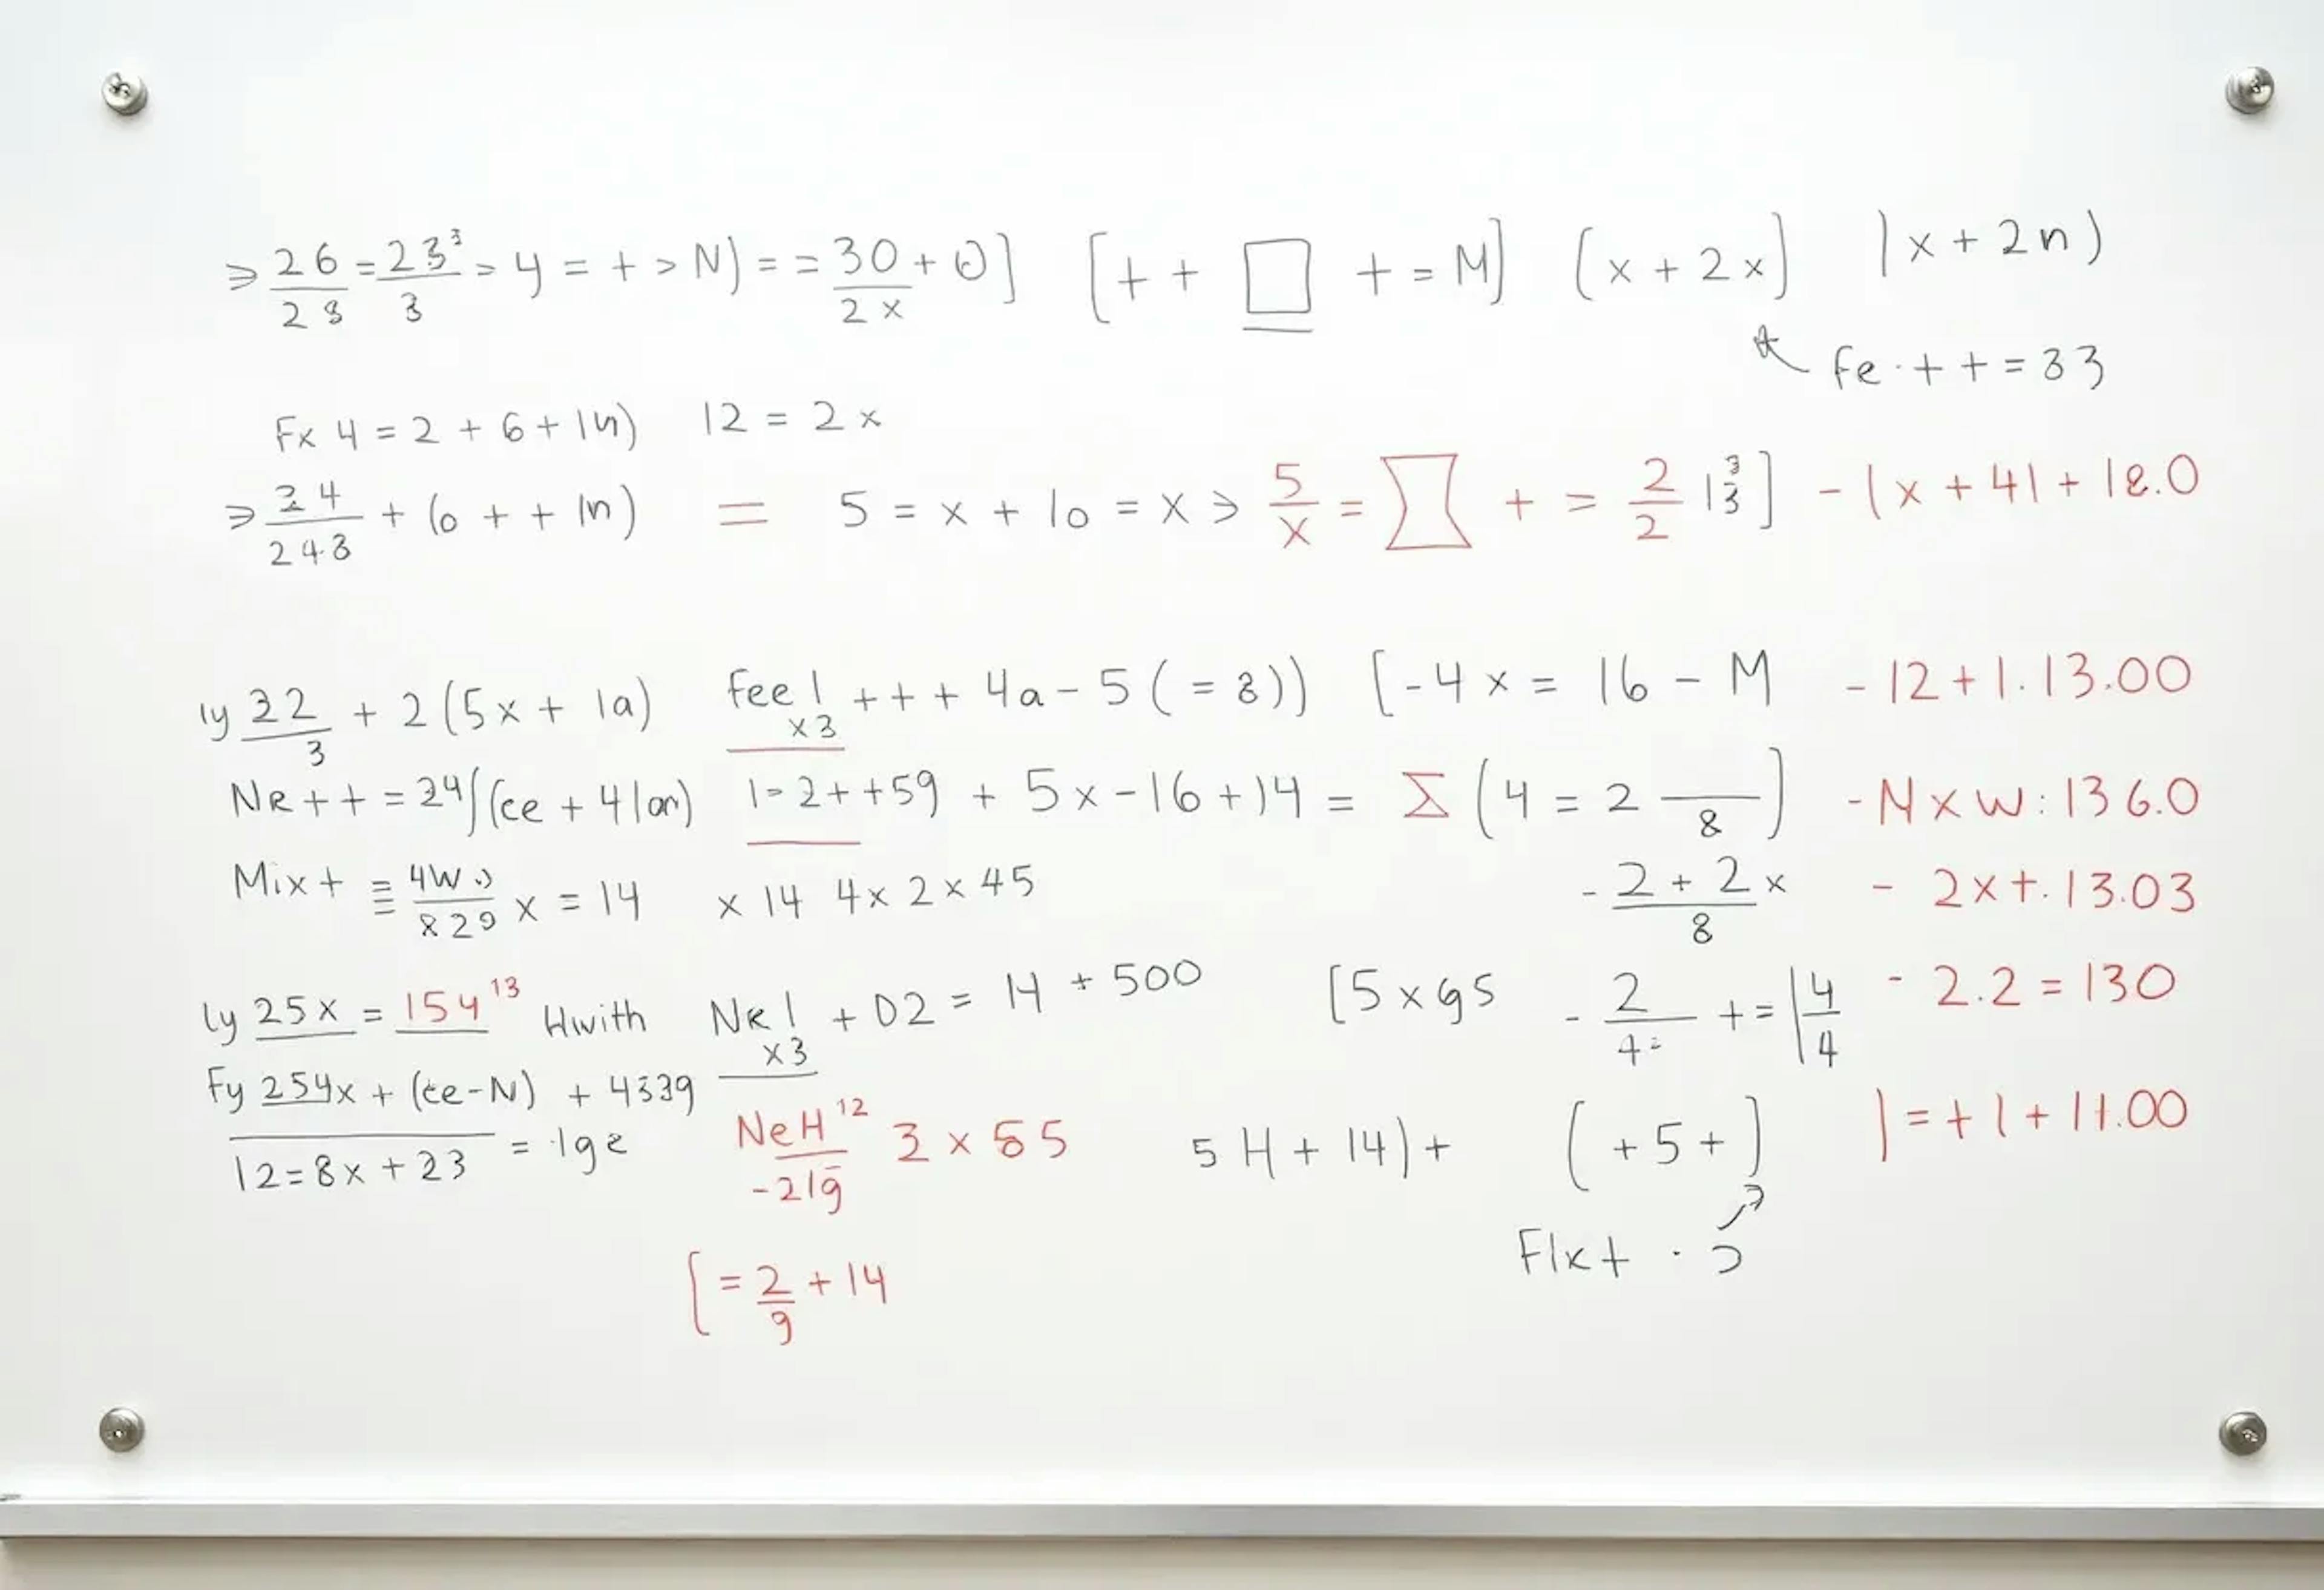 ⩾ 26/28 = 23³/3 = y = + > N) = = 30/2x + 0] [+ + □ + = M] (x + 2x] |x + 2n)
Fe · + + = 33
Fx 4 = 2 + 6 + 1n) 12 = 2x
⩾ 24/243 + (o + + 1n) = 5 = x + 10 = x > 5/x = + = 2/2 13/3] - |x + 4| + 18.0
ly 32/3 + 2(5x + 1a) Feel x3 + + + 4a - 5( = 8)) [-4x = 16 - M - 12 + 1.13.00
Ne + + = 24∫(ce + 4|an) 1 = 2 + + 59 + 5x - 16 + 14 = Σ(4 = 2 —/8) - N x W: 136.0
Mix + ≡ 4W/829 x = 14 x 14 4x 2 x 45 - 2 + 2/8 x - 2x + .13.03
ly 25x = 154¹³ Hwith Ne! x3 + 02 = 14 + 500 [5 x g5 - 2/4 + = |4/4 - 2.2 = 130
Fy 254x + (ce - N) + 4339
12 = 8x + 23 = 1g2 NeH¹²/-219 3 x 55 5 H + 14) + ( + 5 + ] | = + 1 + 11.00
[ = 2/9 + 14 F1x + ·